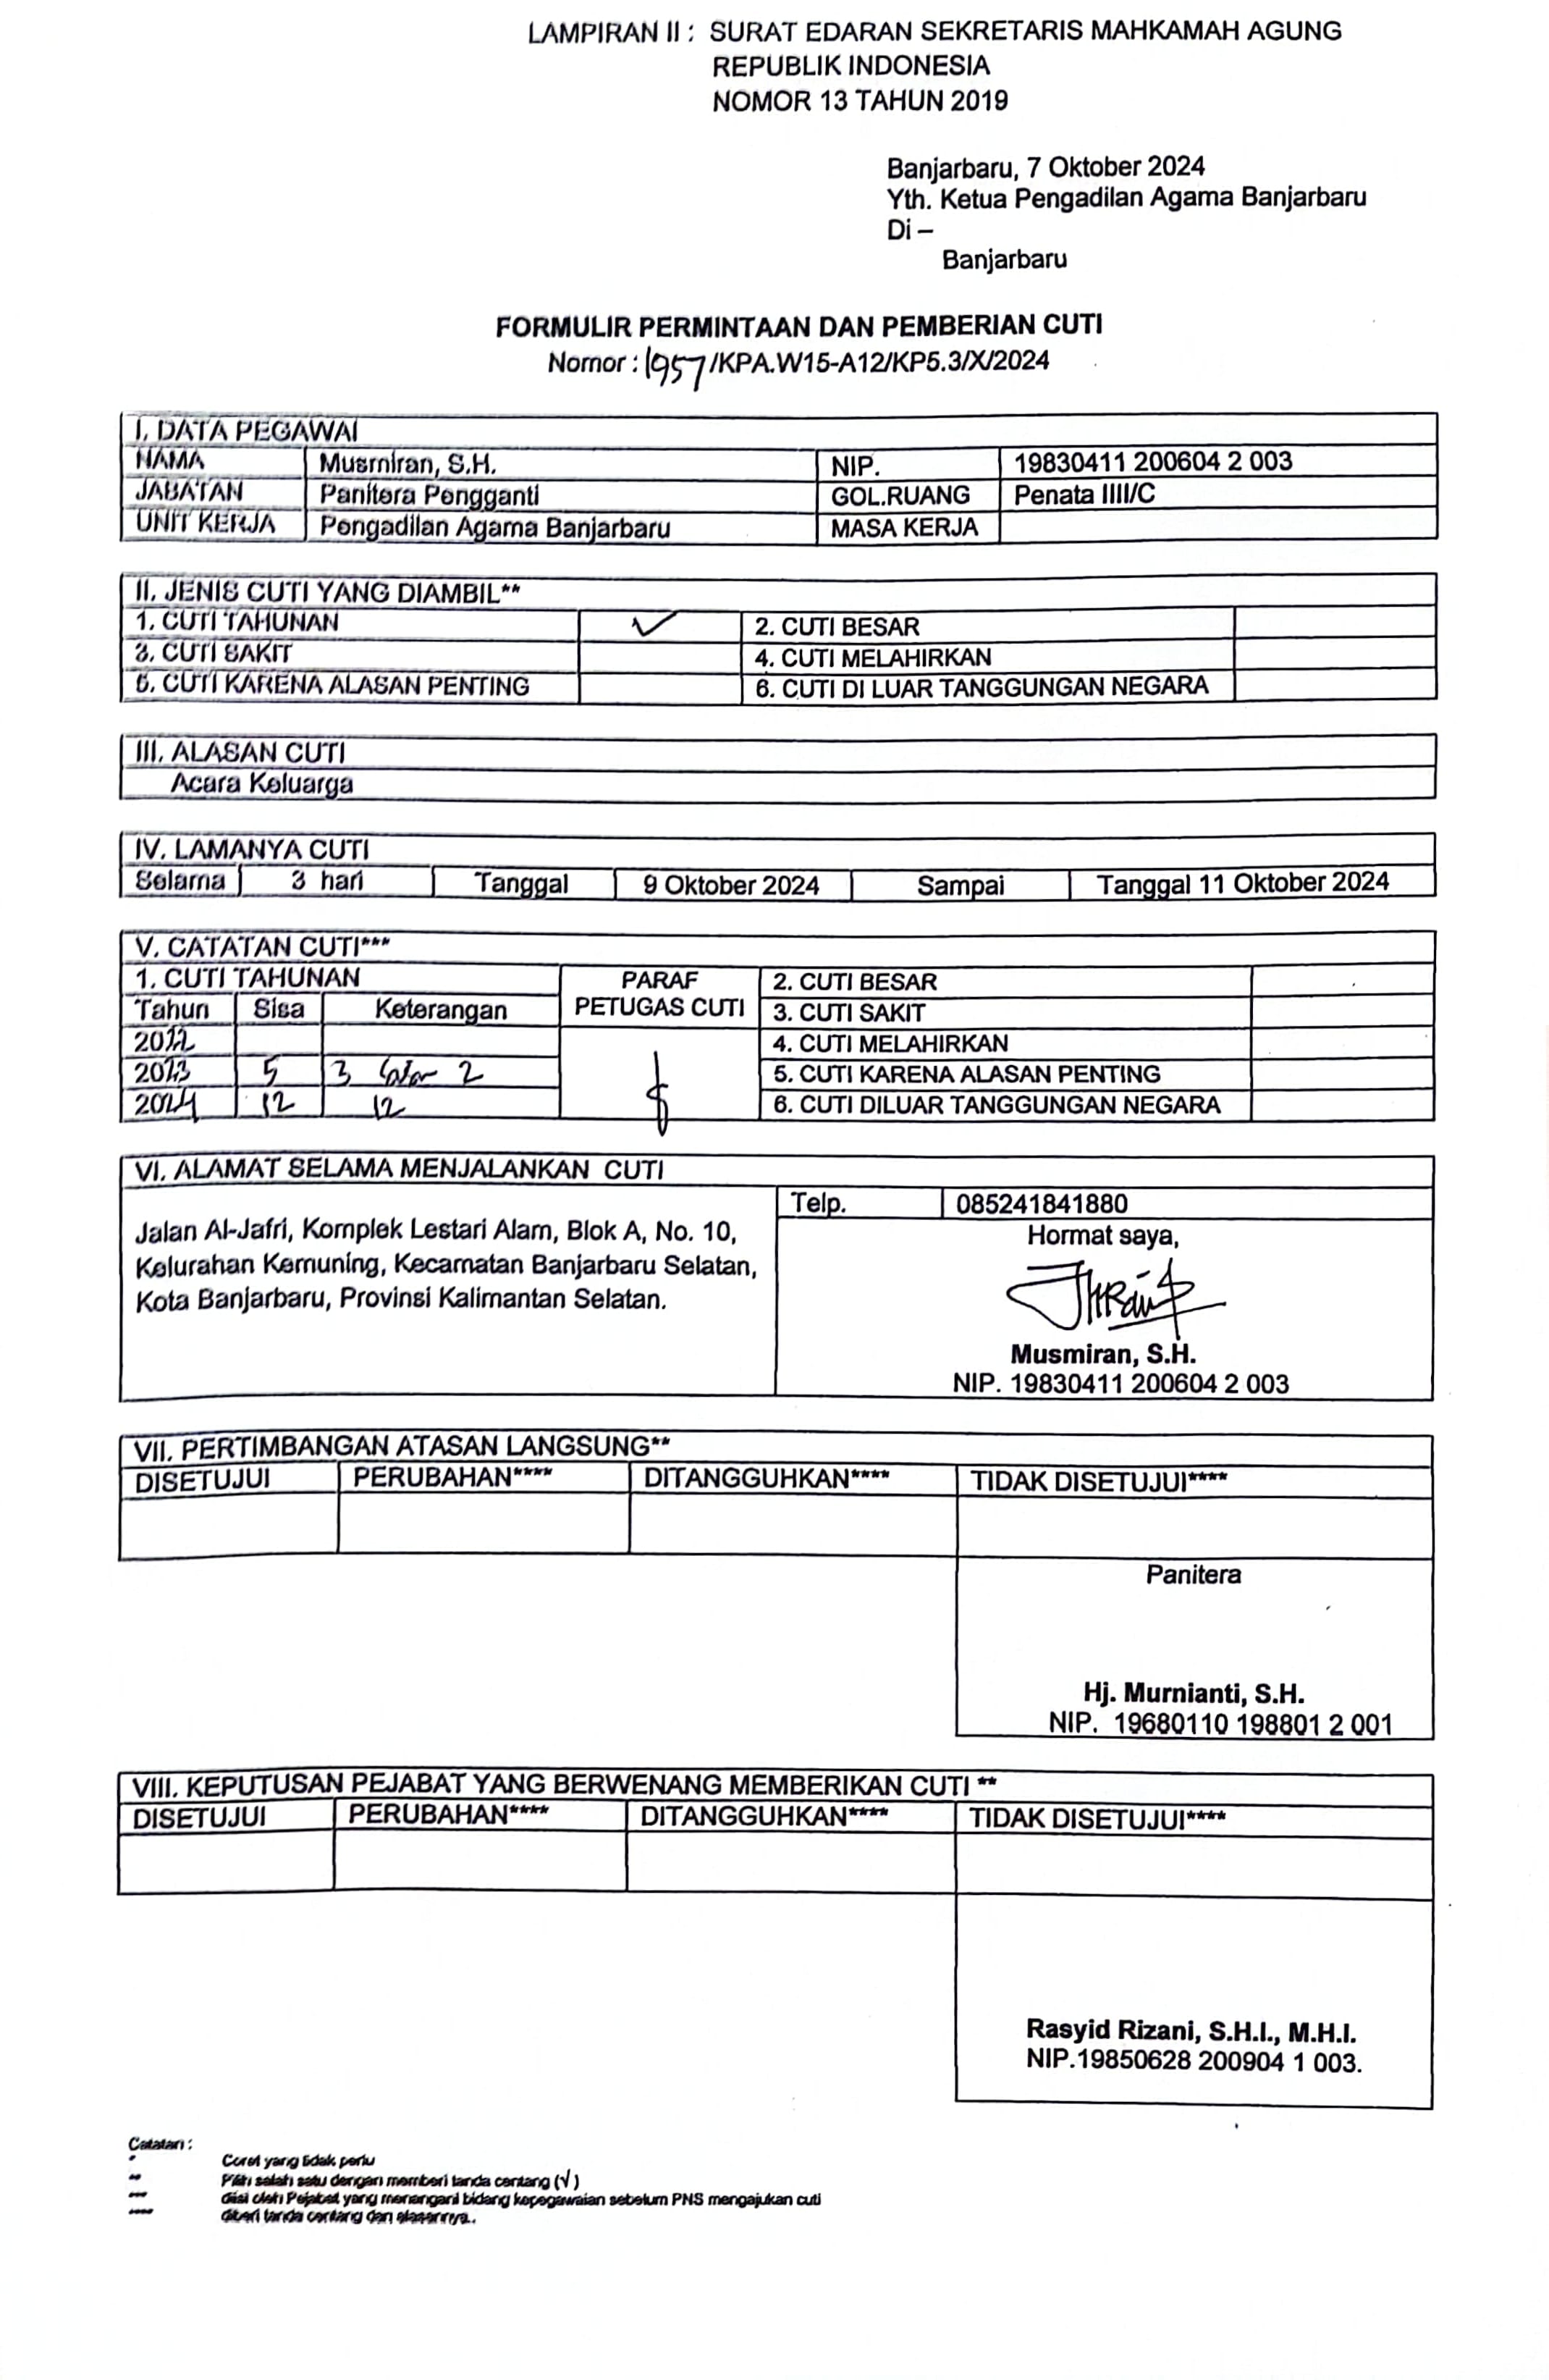 LAMPIRAN II : SURAT EDARAN SEKRETARIS MAHKAMAH AGUNG
REPUBLIK INDONESIA
NOMOR 13 TAHUN 2019
Banjarbaru, 7 Oktober 2024
Yth. Ketua Pengadilan Agama Banjarbaru
Di –
Banjarbaru
FORMULIR PERMINTAAN DAN PEMBERIAN CUTI
Nomor : 1957/KPA.W15-A12/KP5.3/X/2024
I. DATA PEGAWAI
NAMA Musmiran, S.H. NIP. 19830411 200604 2 003
JABATAN Panitera Pengganti GOL.RUANG Penata IIII/C
UNIT KERJA Pengadilan Agama Banjarbaru MASA KERJA
II. JENIS CUTI YANG DIAMBIL**
1. CUTI TAHUNAN ✓ 2. CUTI BESAR
3. CUTI SAKIT 4. CUTI MELAHIRKAN
5. CUTI KARENA ALASAN PENTING 6. CUTI DI LUAR TANGGUNGAN NEGARA
III. ALASAN CUTI
Acara Keluarga
IV. LAMANYA CUTI
Selama 3 hari Tanggal 9 Oktober 2024 Sampai Tanggal 11 Oktober 2024
V. CATATAN CUTI***
1. CUTI TAHUNAN PARAF PETUGAS CUTI 2. CUTI BESAR
Tahun Sisa Keterangan 3. CUTI SAKIT
2022 4. CUTI MELAHIRKAN
2023 5 3 2 5. CUTI KARENA ALASAN PENTING
2024 12 12 6. CUTI DILUAR TANGGUNGAN NEGARA
VI. ALAMAT SELAMA MENJALANKAN CUTI
Telp. 085241841880
Jalan Al-Jafri, Komplek Lestari Alam, Blok A, No. 10,
Kelurahan Kemuning, Kecamatan Banjarbaru Selatan,
Kota Banjarbaru, Provinsi Kalimantan Selatan.
Hormat saya,
Musmiran, S.H.
NIP. 19830411 200604 2 003
VII. PERTIMBANGAN ATASAN LANGSUNG**
DISETUJUI PERUBAHAN**** DITANGGUHKAN**** TIDAK DISETUJUI****
Panitera
Hj. Murnianti, S.H.
NIP. 19680110 198801 2 001
VIII. KEPUTUSAN PEJABAT YANG BERWENANG MEMBERIKAN CUTI **
DISETUJUI PERUBAHAN**** DITANGGUHKAN**** TIDAK DISETUJUI****
Rasyid Rizani, S.H.I., M.H.I.
NIP.19850628 200904 1 003.
Catatan :
* Coret yang tidak perlu
** Pilih salah satu dengan memberi tanda centang (√)
*** diisi oleh Pejabat yang menangani bidang kepegawaian sebelum PNS mengajukan cuti
**** diberi tanda centang dan alasannya.